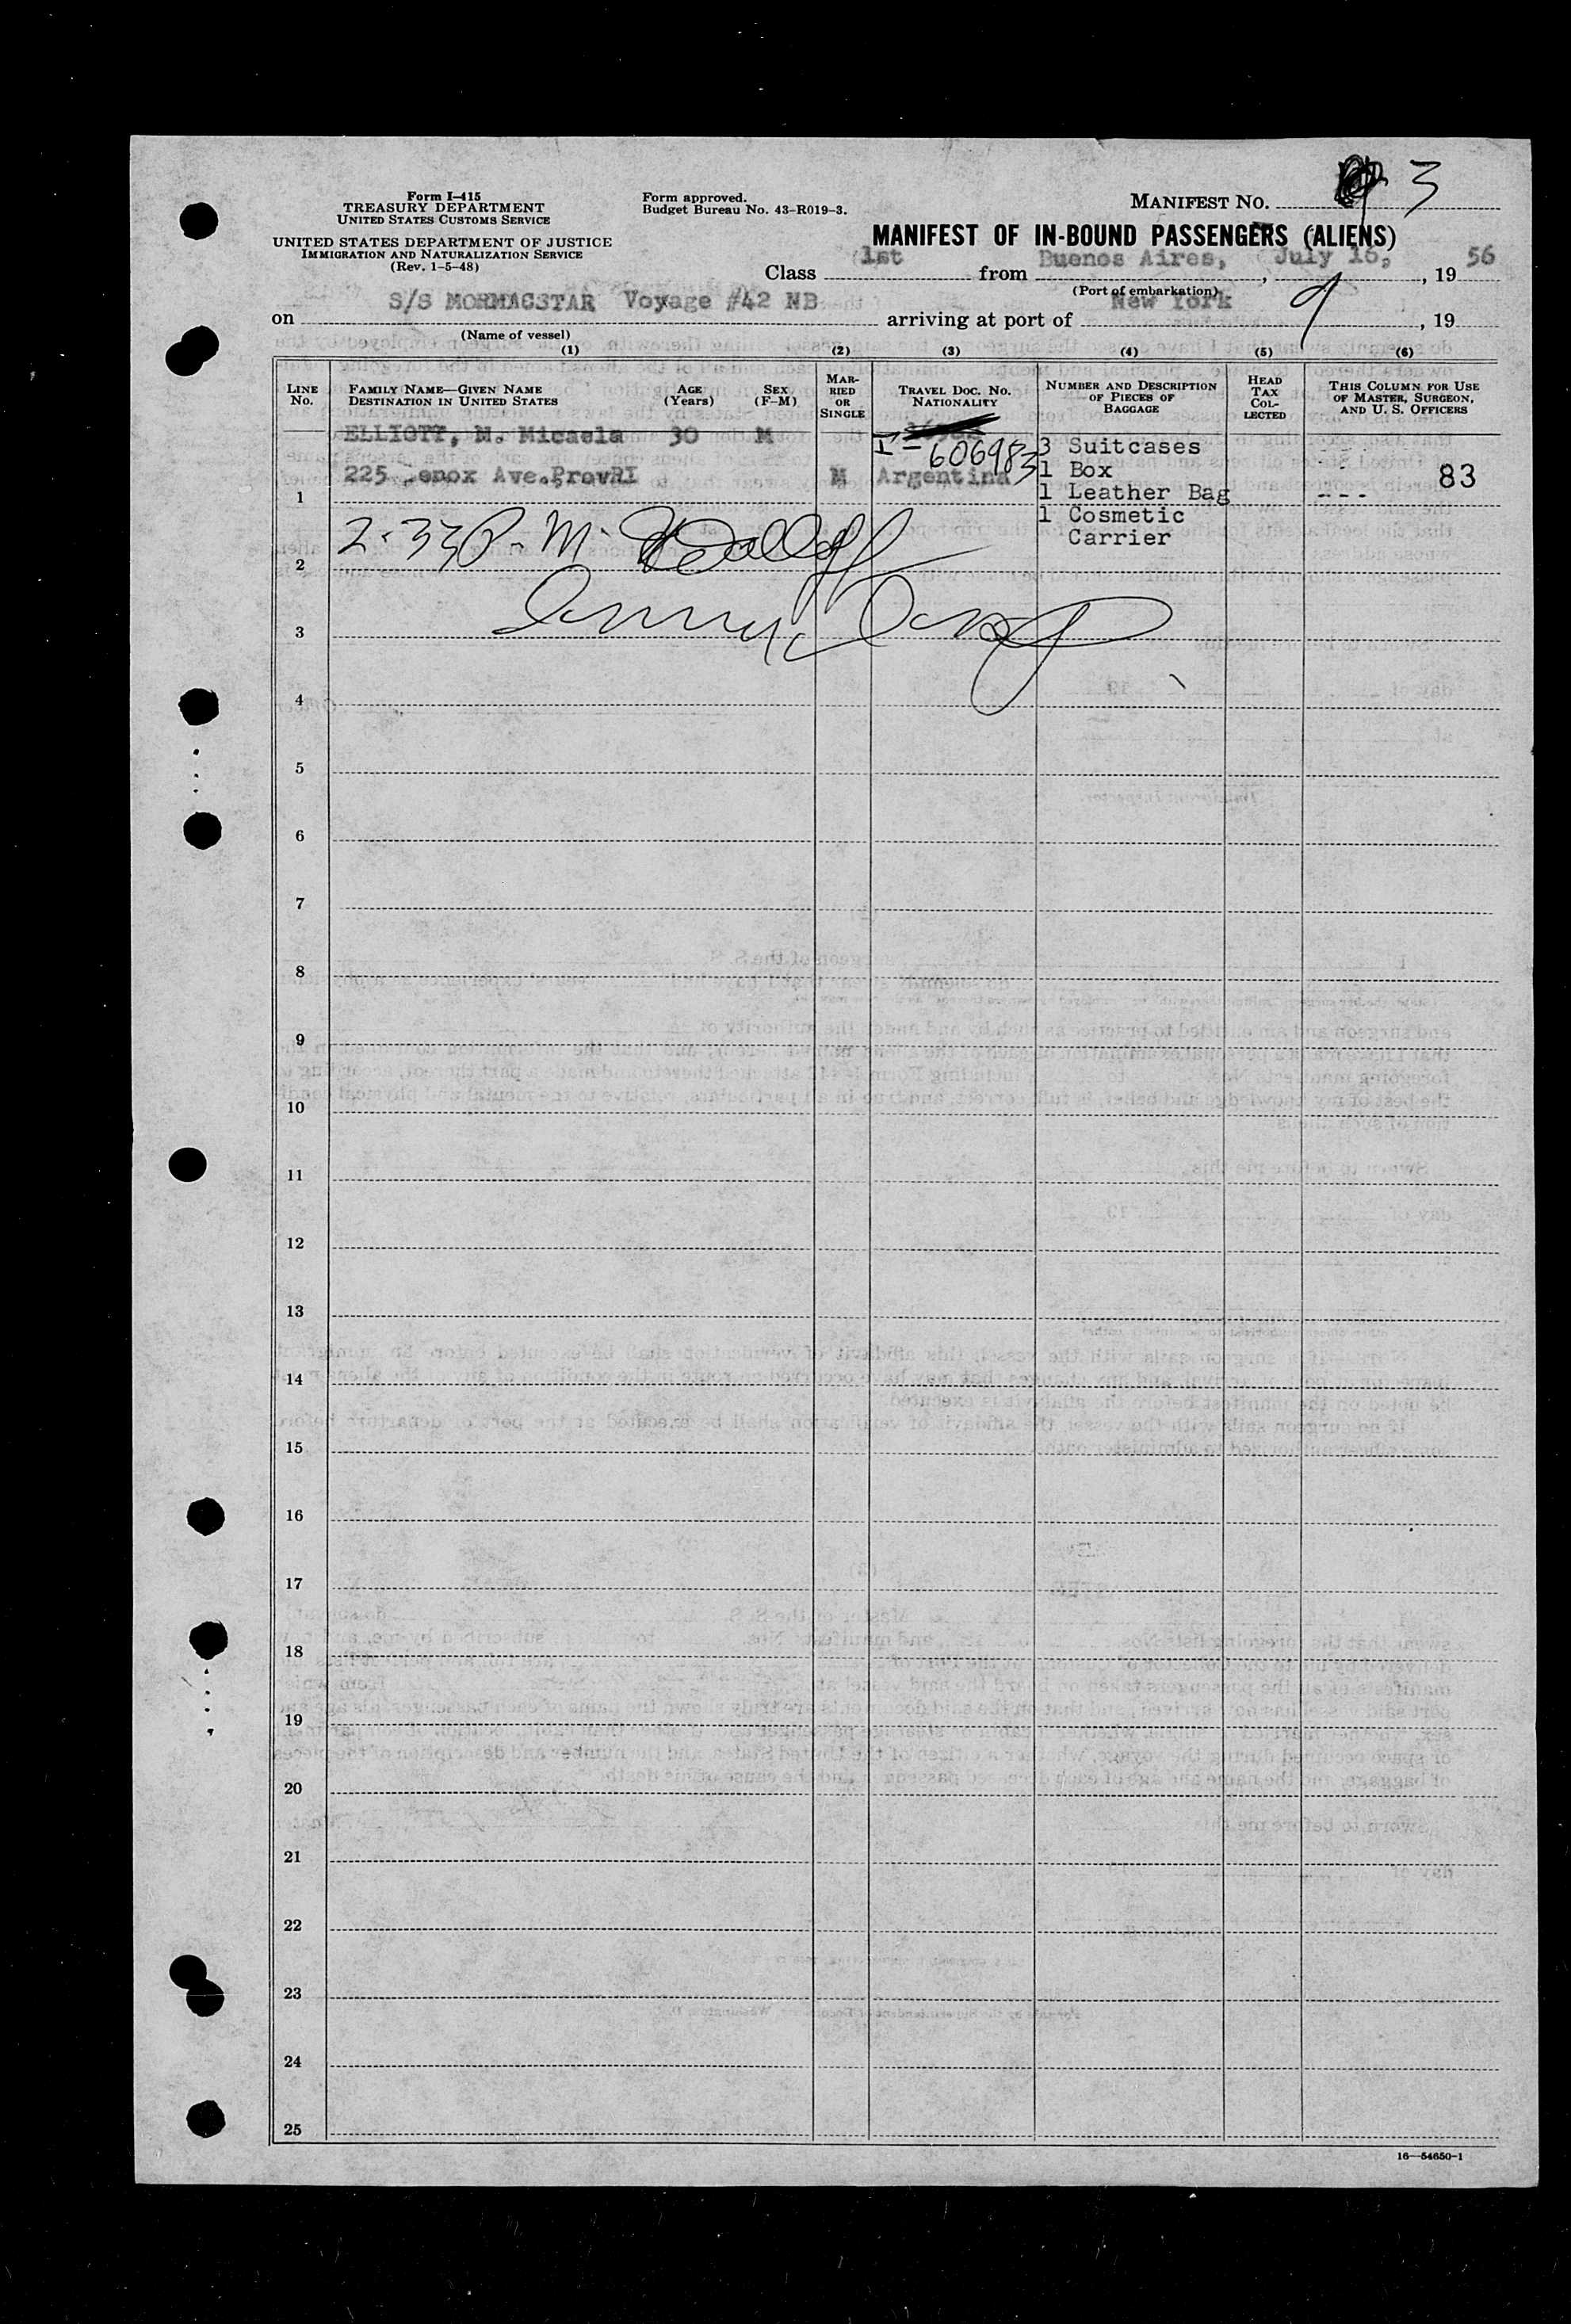 Form I-415
TREASURY DEPARTMENT
UNITED STATES CUSTOMS SERVICE
UNITED STATES DEPARTMENT OF JUSTICE
IMMIGRATION AND NATURALIZATION SERVICE
(Rev. 1-5-48)
Form approved.
Budget Bureau No. 43-R019-3.
MANIFEST NO. 3
MANIFEST OF IN-BOUND PASSENGERS (ALIENS)
Class 1st from Buenos Aires, July 16, , 1956
(Port of embarkation)
on S/S MORMACSTAR Voyage #42 NB arriving at port of New York , 19
(Name of vessel)
(1) (2) (3) (4) (5) (6)
LINE No. FAMILY NAME—GIVEN NAME DESTINATION IN UNITED STATES AGE (Years) SEX (F-M) MARRIED OR SINGLE TRAVEL DOC. NO. NATIONALITY NUMBER AND DESCRIPTION OF PIECES OF BAGGAGE HEAD TAX COLLECTED THIS COLUMN FOR USE OF MASTER, SURGEON, AND U. S. OFFICERS
ELLIOTT, M. Micaela 30 M I-606983 3 Suitcases
225 Lenox Ave.ProvRI M Argentina 1 Box 83
1 1 Leather Bag ---
2-33 P.M. 1 Cosmetic
Carrier
2
3
4
5
6
7
8
9
10
11
12
13
14
15
16
17
18
19
20
21
22
23
24
25
16—54650-1